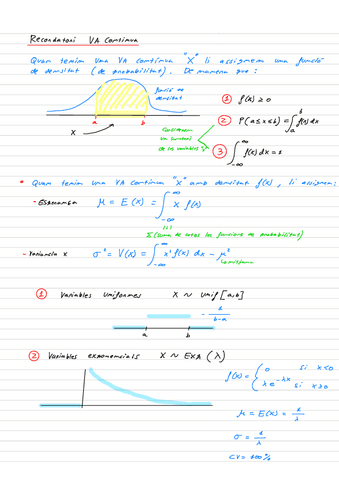 Recordatori VA Contínua
Quan tenim una VA contínua "X" li assignem una funció
de densitat (de probabilitat). De manera que:
funció de
densitat
① f(x) ≥ 0
a b
② P(a≤x≤b) = ∫_a^b f(x) dx
X
de les variables
③ ∫_{-∞}^{∞} f(x) dx = 1
• Quan tenim una VA contínua "X" amb densitat f(x), li assignem:
- Esperança μ = E(X) = ∫_{-∞}^{∞} x f(x)
Σ (suma de totes les funcions de probabilitat)
- Variància x σ² = V(X) = ∫_{-∞}^{∞} x² f(x) dx - μ²
① Variables uniformes X ~ Unif [a,b]
- 1/(b-a)
a b
② Variables exponencials X ~ Exp (λ)
f(x) = { 0 si x<0
λ e^{-λx} si x≥0
μ = E(X) = 1/λ
σ = 1/λ
CV = 100%